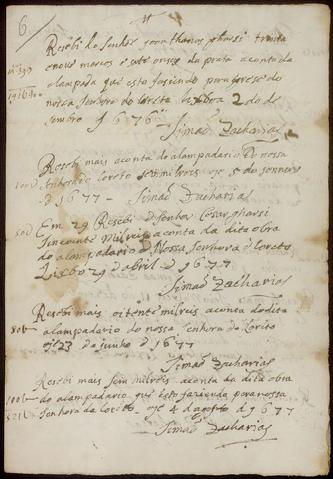 6
Recebi do Senhor joan thomas gharsi trinta
e nove marcos e sete onsas da prata a conta da
alampada que esto fasiendo para a igreja de
nossa senhora do loreto lisboa 2 do de
sembro 1676
Simaõ Zacharias
Recebi mais a conta do alampadario de nossa
senhora do Loreto sem milreis oje 5 do jenneiro
d 1677 Simaõ Zacharias
50U Em 29 Recebi do senhor Cesar gharsi
sincoenta Milreis a conta da dita obra
do alampadario d Nossa senhora d Loreto
Lisboa 29 d abril d 1677
Simaõ Zacharias
Recebi mais oitenta milreis a conta do dito
80U alampadario do nossa senhora do Lorito
oje 23 de junho d 1677
Simaõ Zacharias
Recebi mais sem milreis a conta da dita obra
100U do alampadario que esto fazendo pera nossa
senhora da Loreto, oje 4 dagosto d 1677
Simaõ Zacharias